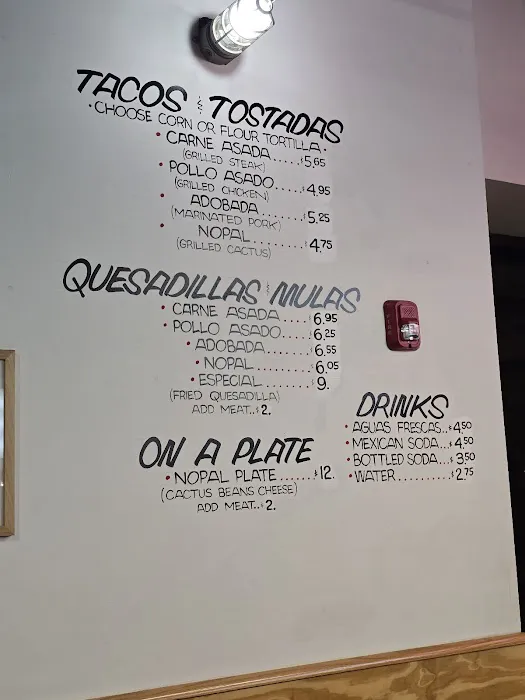 TACOS & TOSTADAS
•CHOOSE CORN OR FLOUR TORTILLA•
•CARNE ASADA.....$5.65
(GRILLED STEAK)
•POLLO ASADO....$4.95
(GRILLED CHICKEN)
•ADOBADA.......$5.25
(MARINATED PORK)
•NOPAL........$4.75
(GRILLED CACTUS)
QUESADILLAS & MULAS
•CARNE ASADA....$6.95
•POLLO ASADO....$6.25
•ADOBADA.......$6.55
•NOPAL........$6.05
•ESPECIAL.......$9.
(FRIED QUESADILLA)
ADD MEAT..$2.
ON A PLATE
•NOPAL PLATE......$12.
(CACTUS BEANS CHEESE)
ADD MEAT..$2.
DRINKS
•AGUAS FRESCAS..$4.50
•MEXICAN SODA...$4.50
•BOTTLED SODA...$3.50
•WATER..........$2.75